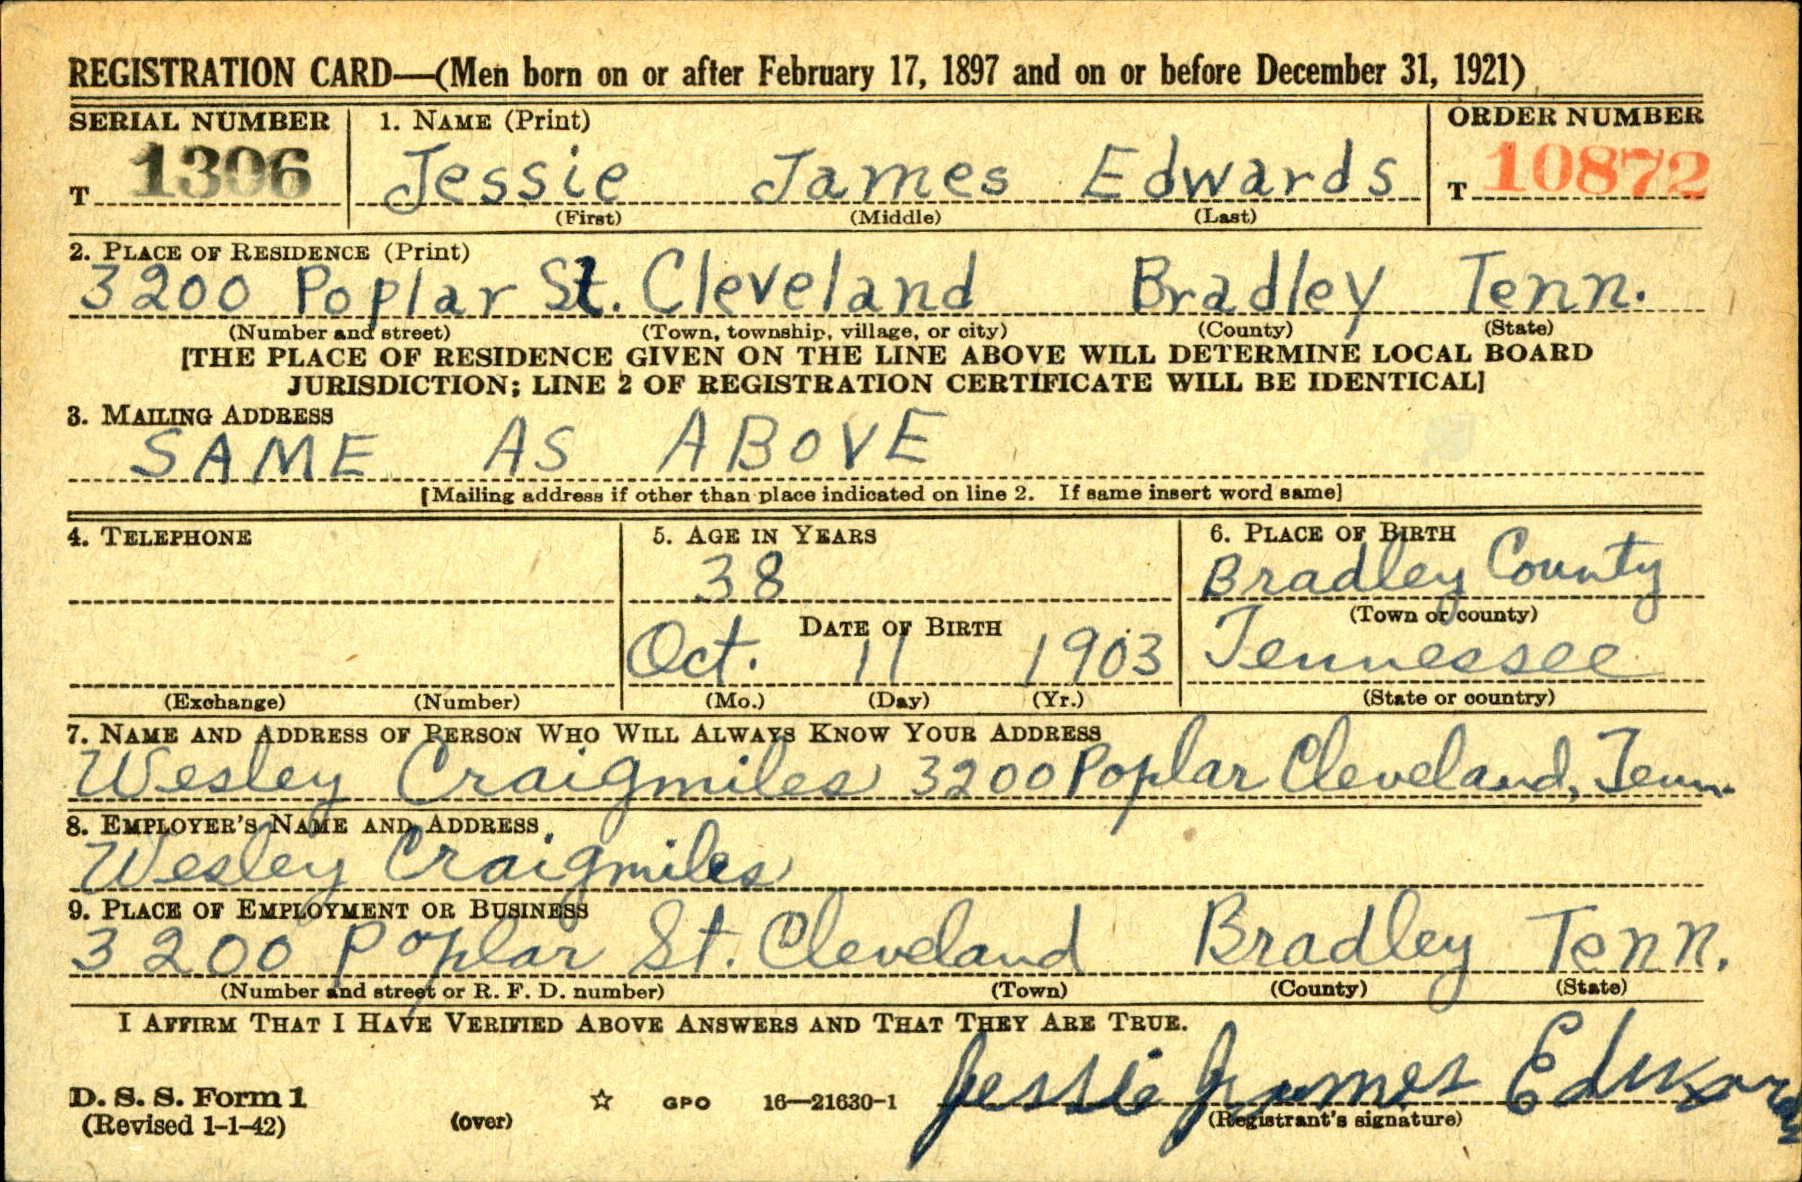 REGISTRATION CARD—(Men born on or after February 17, 1897 and on or before December 31, 1921)
SERIAL NUMBER 1. NAME (Print) ORDER NUMBER
T 1306 Jessie James Edwards T 10872
(First) (Middle) (Last)
2. PLACE OF RESIDENCE (Print)
3200 Poplar St. Cleveland Bradley Tenn.
(Number and street) (Town, township, village, or city) (County) (State)
[THE PLACE OF RESIDENCE GIVEN ON THE LINE ABOVE WILL DETERMINE LOCAL BOARD
JURISDICTION; LINE 2 OF REGISTRATION CERTIFICATE WILL BE IDENTICAL]
3. MAILING ADDRESS
SAME AS ABOVE
[Mailing address if other than place indicated on line 2. If same insert word same]
4. TELEPHONE 5. AGE IN YEARS 6. PLACE OF BIRTH
38 Bradley County
DATE OF BIRTH (Town or county)
Oct. 11 1903 Tennessee
(Exchange) (Number) (Mo.) (Day) (Yr.) (State or country)
7. NAME AND ADDRESS OF PERSON WHO WILL ALWAYS KNOW YOUR ADDRESS
Wesley Craigmiles 3200 Poplar Cleveland, Tenn.
8. EMPLOYER'S NAME AND ADDRESS
Wesley Craigmiles
9. PLACE OF EMPLOYMENT OR BUSINESS
3200 Poplar St. Cleveland Bradley Tenn.
(Number and street or R. F. D. number) (Town) (County) (State)
I AFFIRM THAT I HAVE VERIFIED ABOVE ANSWERS AND THAT THEY ARE TRUE.
Jessie James Edwards
D. S. S. Form 1
(Revised 1-1-42) (over) GPO 16—21630-1 (Registrant's signature)